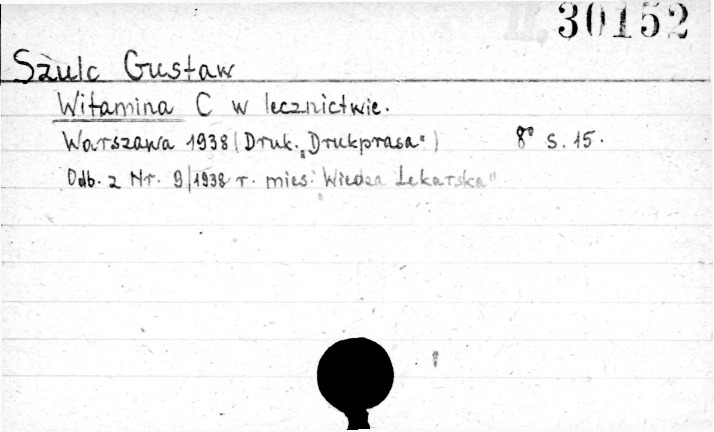 II, 30152
Szulc Gustaw
Witamina C w lecznictwie.
Warszawa 1938 (Druk. „Drukprasa") 8° s. 15.
Odb. z Nr. 9/1938 r. mies. Wiedza Lekarska"